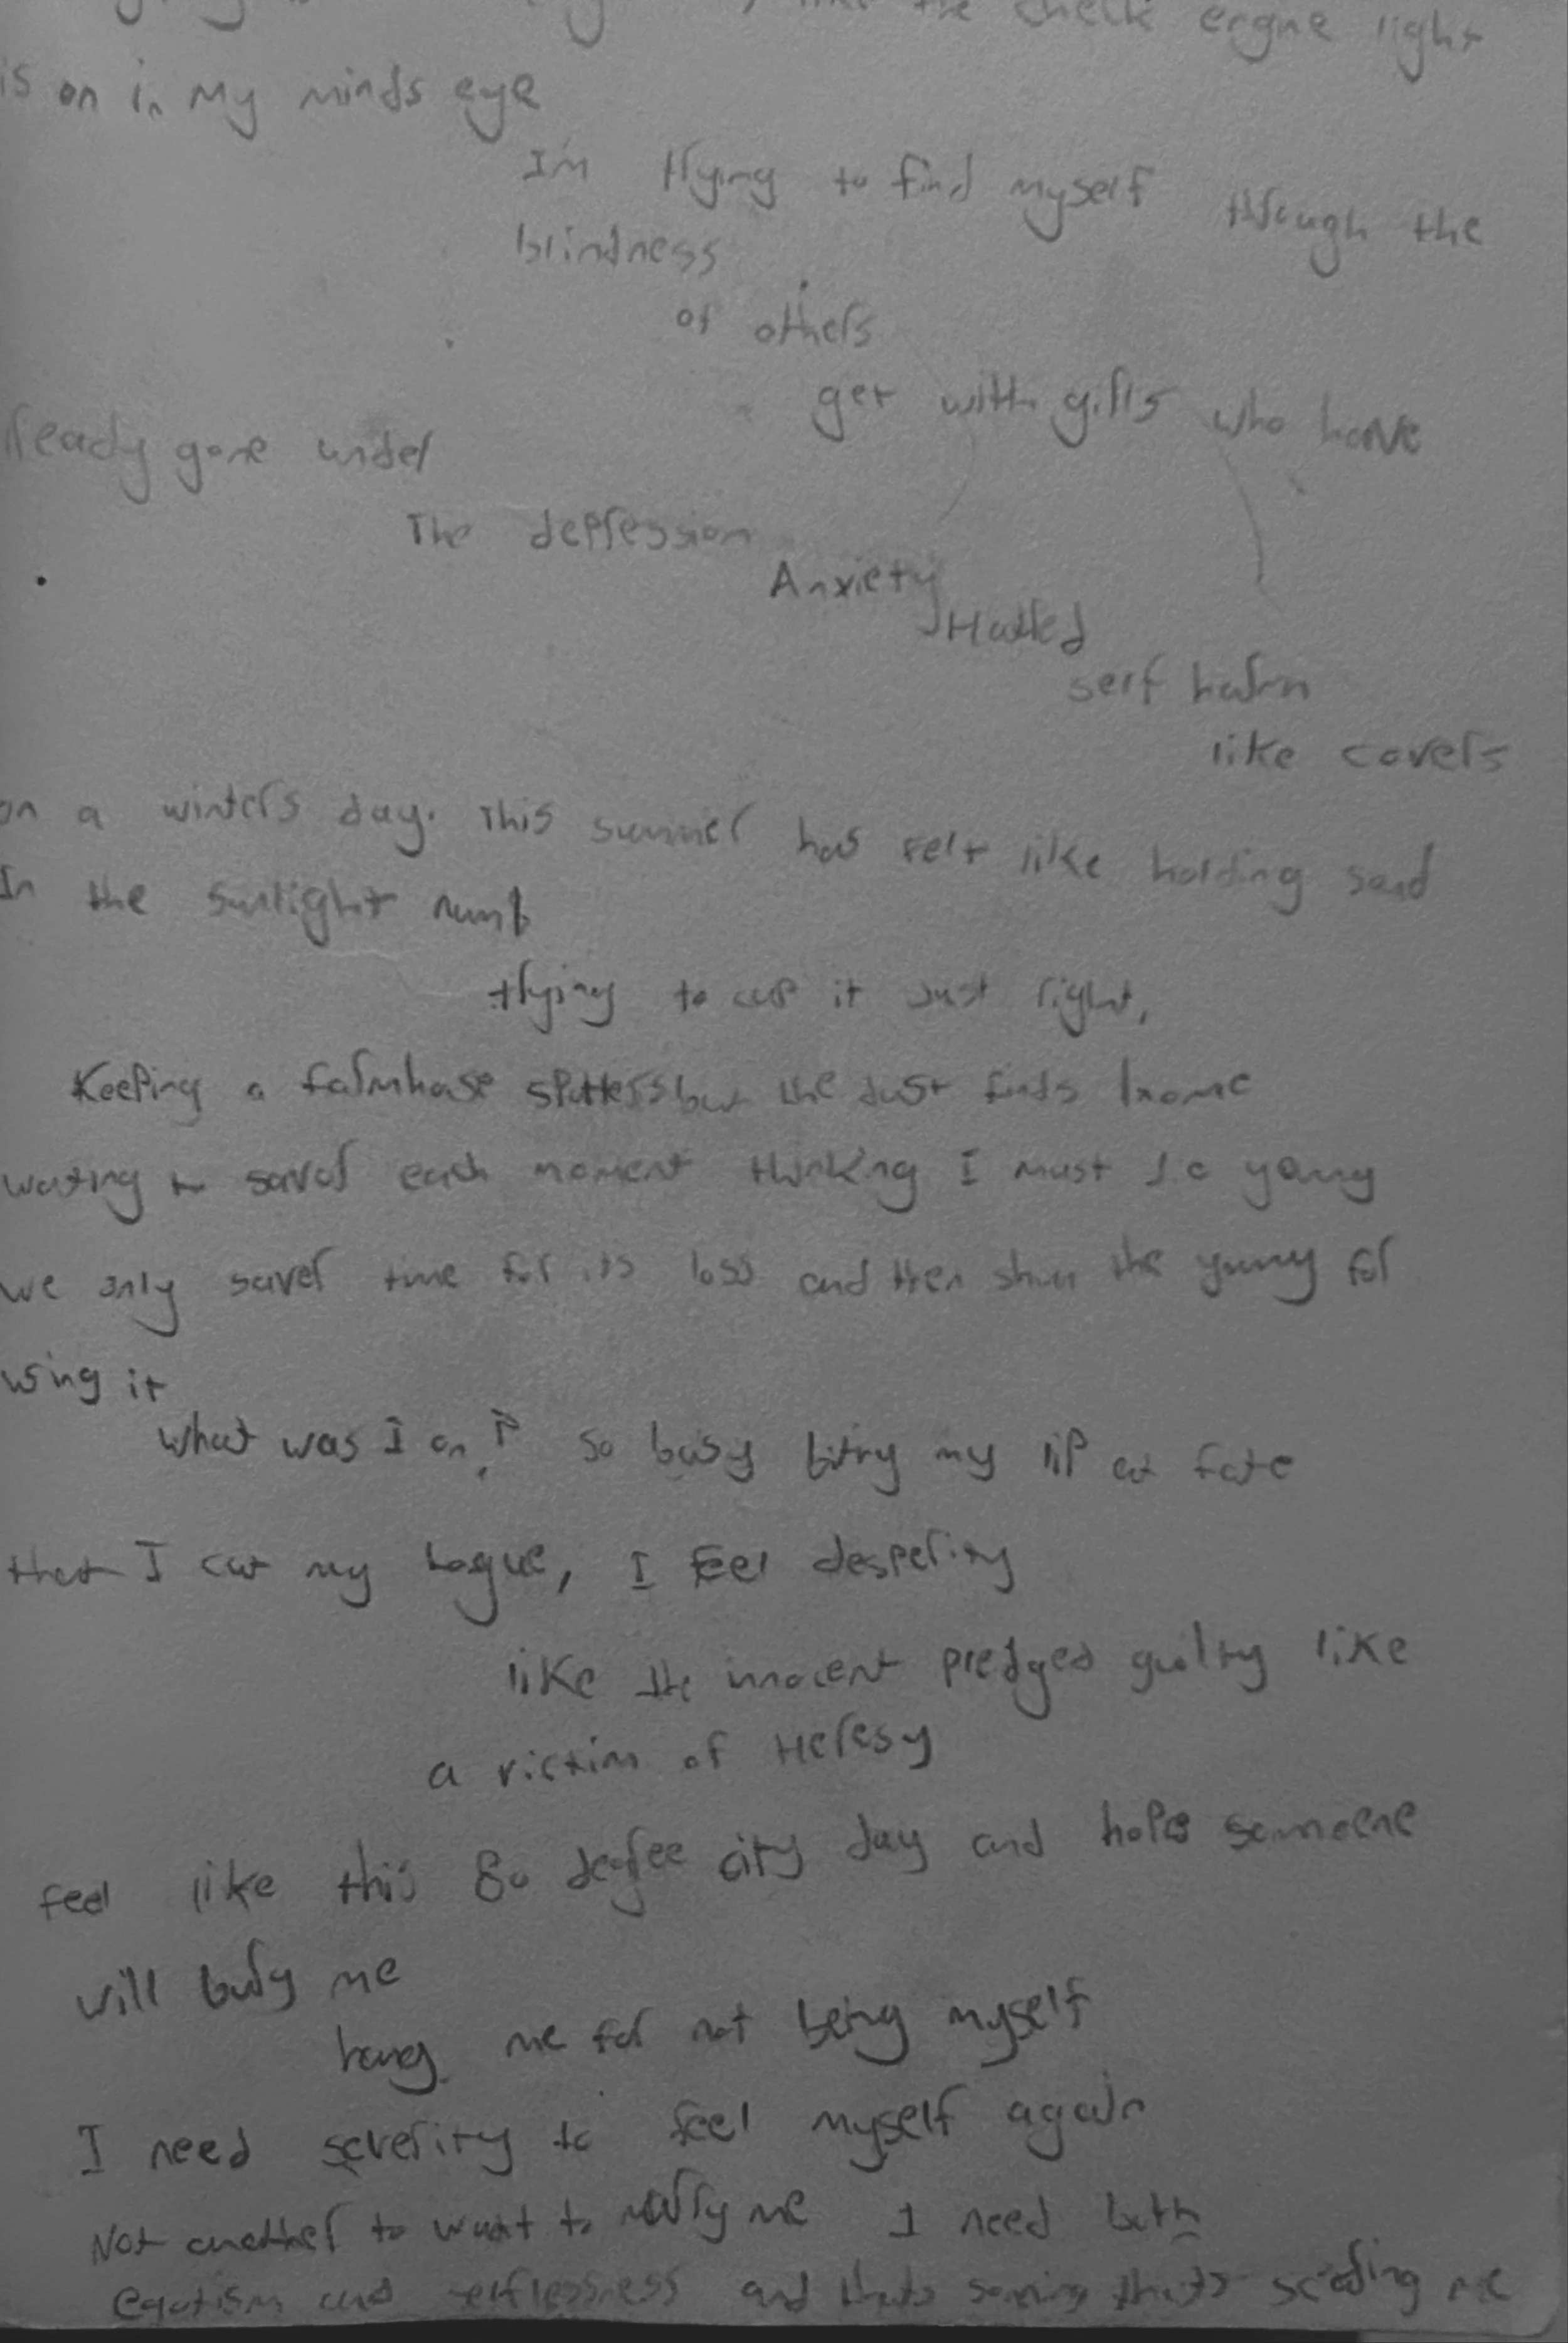 the check engine light
is on in my minds eye
I'm trying to find myself through the
blindness
of others
get with girls who have
ready gone under
The depression
Anxiety
Hatred
self harm
like covers
on a winters day. This summer has felt like holding sand
In the sunlight numb
trying to cup it Just right,
Keeping a farmhouse spotless but the dust finds home
wating to savor each moment thinking I must be young
we only saver time for its loss and then shun the young for
using it
what was I on? so busy biting my lip at fate
that I cut my togue, I feel desperity
like the innocent pledged guilty like
a victim of Heresy
feel like this 80 degree city day and hope someone
will bury me
hang me for not being myself
I need severity to feel myself again
Not another to want to marry me I need both
egotism and selflessness and thats something thats scaring me